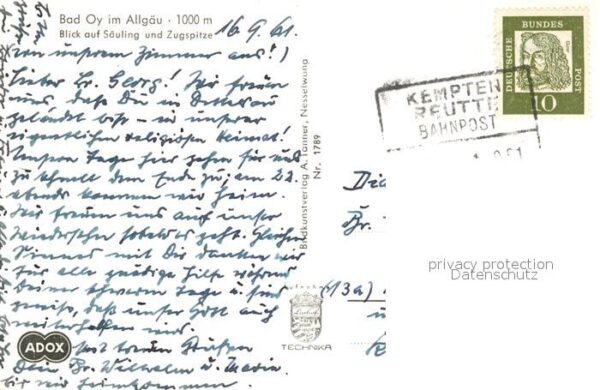 Bad Oy im Allgäu · 1000 m
Blick auf Säuling und Zugspitze
16.9.61.
von unserem Zimmer aus!)
Lieber Br. Georg! Wir freuen
uns, daß Du in
gelandet bist – in unserer
eigentlichen religiösen Heimat!
Unsere Tage hier gehen für uns
zu schnell dem Ende zu; am 22.
abends kommen wir heim.
Wir freuen uns auf unser
Wiedersehn sobald es geht. Gleichen
Sinnes mit Dir danken wir
für alle gnädige Hilfe während
Deiner schweren Tage u. sind
gewiß, daß unser Gott auch
weiterhelfen wird.
Mit treuen Grüßen
Dein Br. Wilhelm u. Maria
Bildkunstverlag A. Tanner, Nesselwang
Nr. 1789
ADOX
TECHNIKA
DEUTSCHE BUNDESPOST
Dürer
10
KEMPTEN
REUTTE
BAHNPOST
Br.
(13a)
privacy protection
Datenschutz